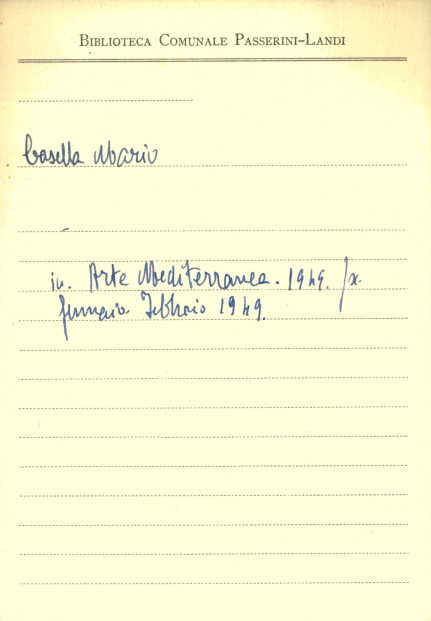 BIBLIOTECA COMUNALE PASSERINI-LANDI
Casella Mario
in. Arte Mediterranea. 1949.
gennaio Febbraio 1949.